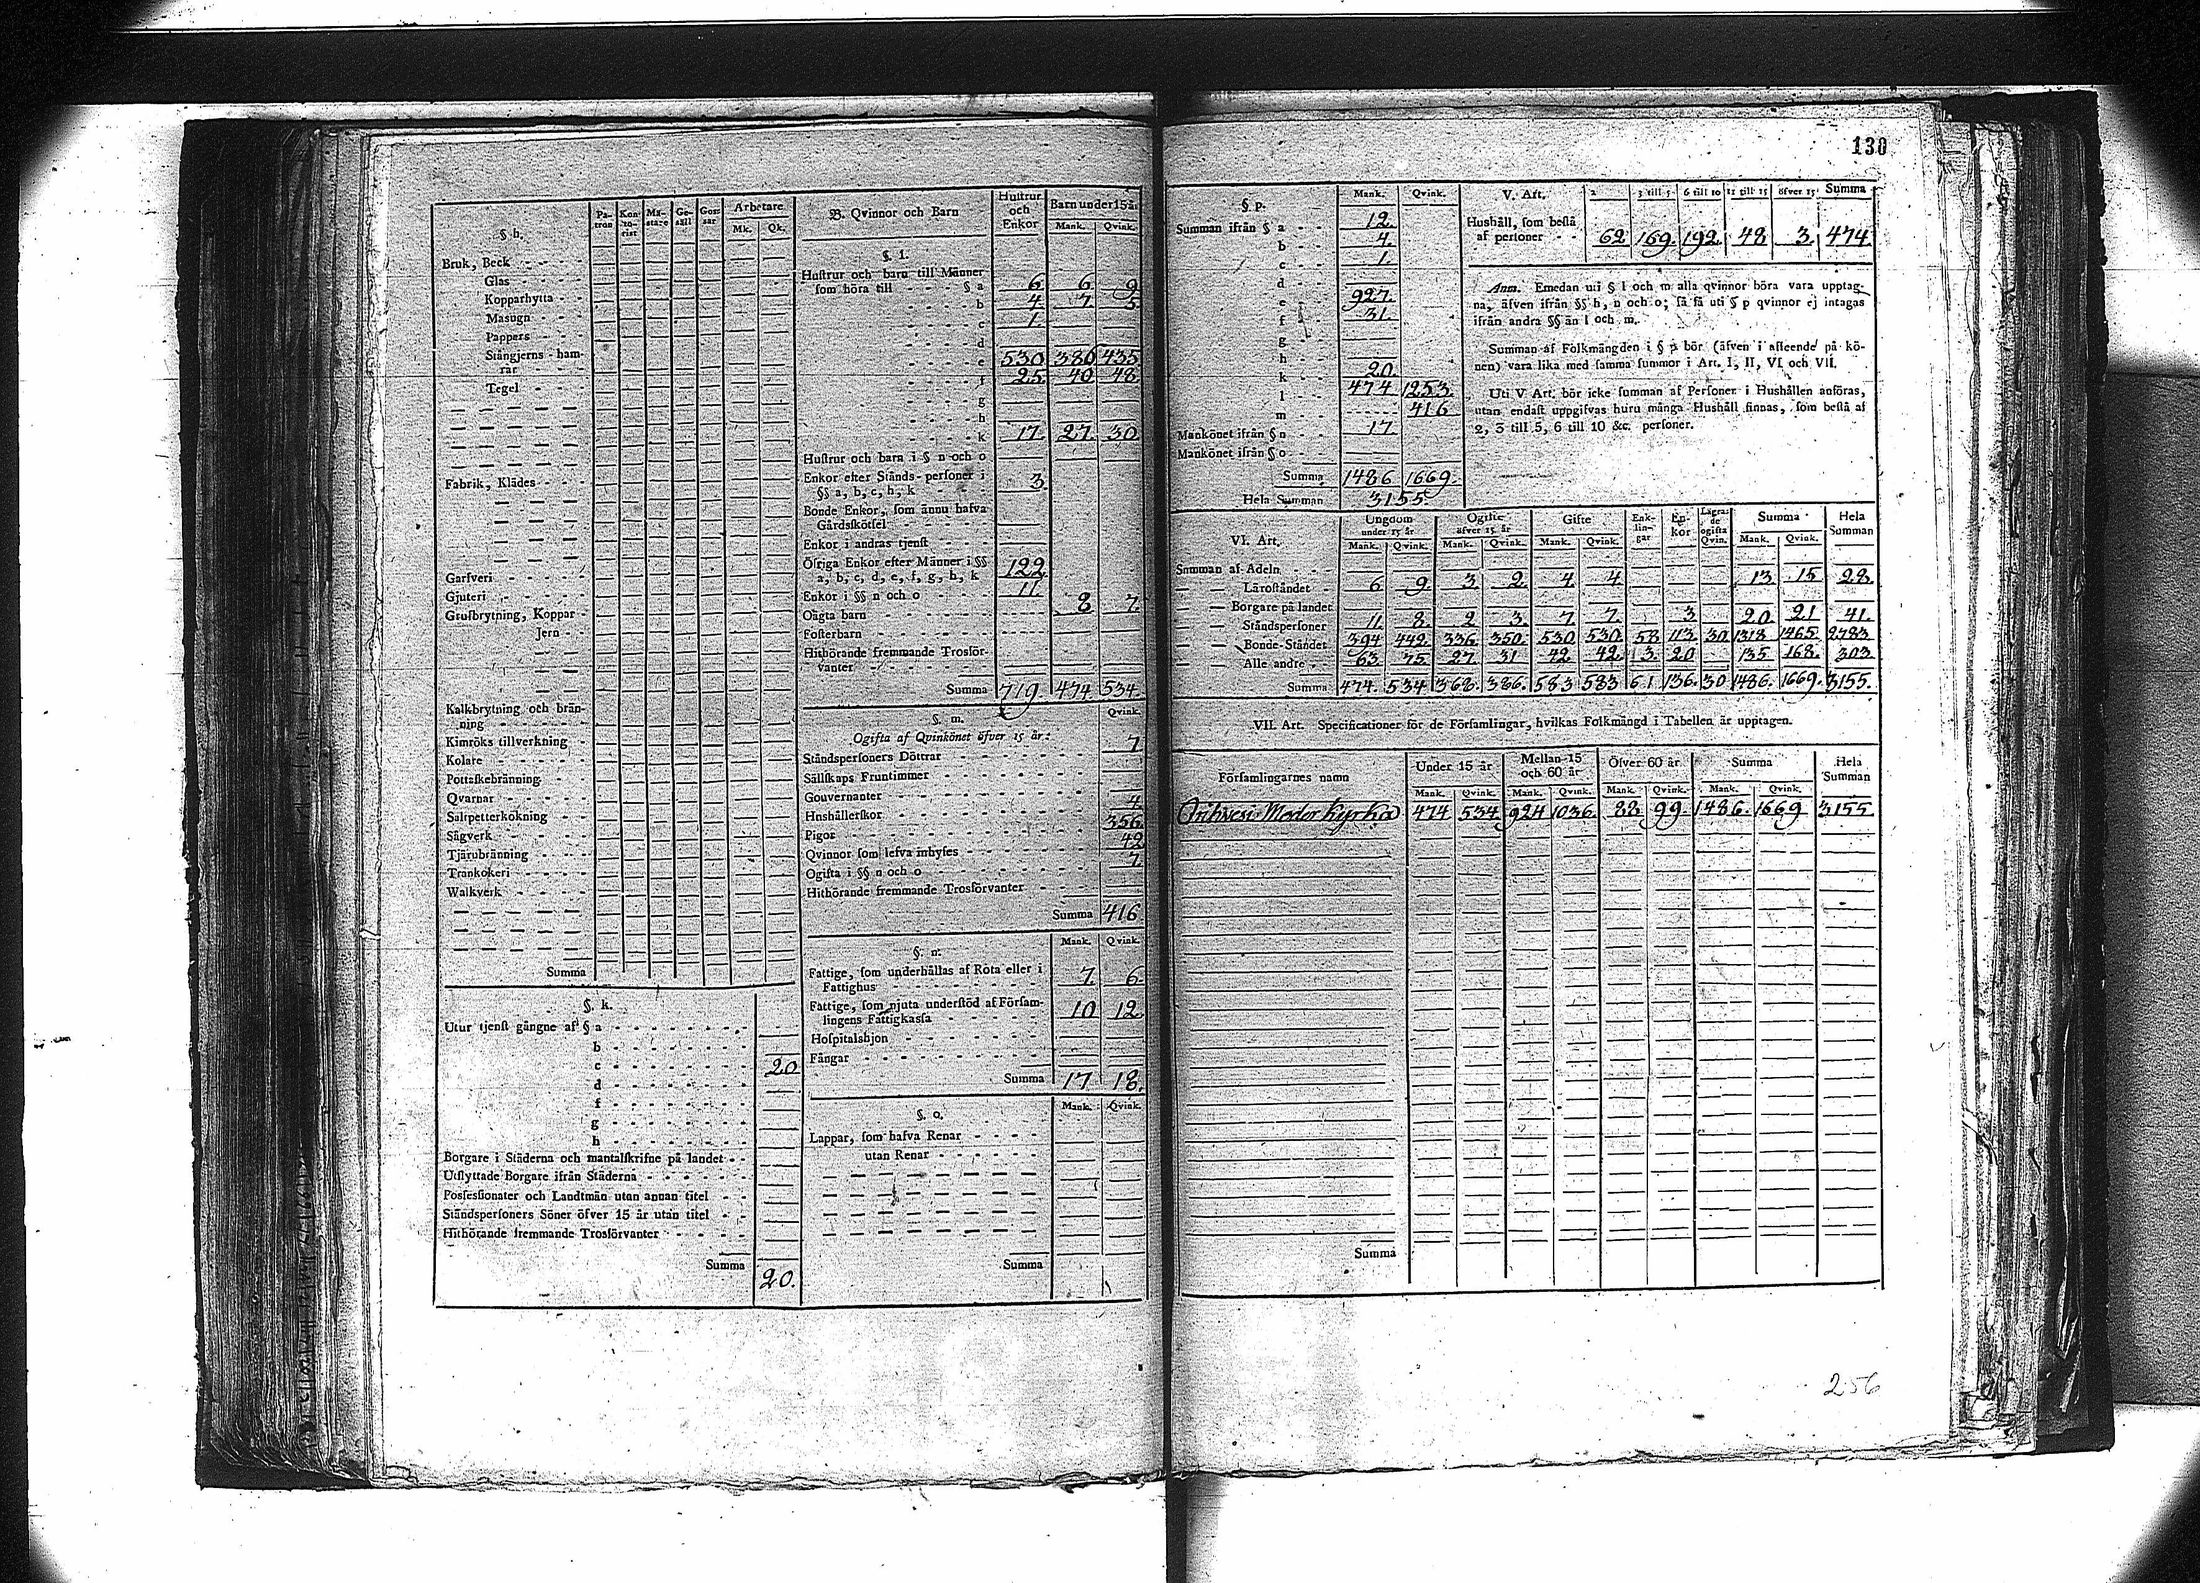 130
§ h. Pa-tron Kon-to-rist Mä-stare Ge-säll Gos-sar Arbetare Mk. Qk.
Bruk, Beck
Glas
Kopparhytta
Masugn
Pappers
Stångjerns-ham-
rar
Tegel
Fabrik, Klädes
Garfveri
Gjuteri
Grufbrytning, Koppar
Jern
Kalkbrytning och brän-
ning
Kimröks tillverkning
Kolare
Pottaskebränning
Qvarnar
Saltpetterkökning
Sågverk
Tjärubränning
Trankokeri
Walkverk
Summa
§. k.
Utur tjenst gångne af § a
b
c 20
d
f
g
h
Borgare i Städerna och mantalskrifne på landet
Utflyttade Borgare ifrån Städerna
Possessionater och Landtmän utan annan titel
Ståndspersoners Söner öfver 15 år utan titel
Hithörande fremmande Trosförvanter
Summa 20.
B. Qvinnor och Barn Hustrur och Enkor Barn under 15 år Mank. Qvink.
§. l.
Hustrur och barn till Männer
som höra till § a 6 6 9
b 4 7 5
c 1
d
e 530 386 435
f 25 40 48
g
h
k 17. 27. 30
Hustrur och barn i § n och o
Enkor efter Stånds-personer i
§§ a, b, c, h, k 3
Bonde Enkor, som ännu hafva
Gårdsskötsel
Enkor i andras tjenst
Öfriga Enkor efter Männer i §§
a, b, c, d, e, f, g, h, k 122
Enkor i §§ n och o 11.
Oägta barn 8 7.
Fosterbarn
Hithörande fremmande Trosför-
vanter
Summa 719. 474 534.
§. m. Qvink.
Ogifta af Qvinkönet öfver 15 år:
Ståndspersoners Döttrar 7
Sällskaps Fruntimmer
Gouvernanter
Hushållerskor 4
Pigor 356
Qvinnor som lefva inhyses 42
Ogifta i §§ n och o 7.
Hithörande fremmande Trosförvanter
Summa 416
§. n. Mank. Qvink.
Fattige, som underhållas af Rota eller i
Fattighus 7. 6.
Fattige, som njuta understöd af Försam-
lingens Fattigkassa 10 12
Hospitalshjon
Fångar
Summa 17 18.
§. o. Mank. Qvink.
Lappar, som hafva Renar
utan Renar
Summa
§ p. Mank. Qvink.
Summan ifrån § a 12.
b 4.
c 1.
d
e 927.
f 31.
g
h
k 20.
l 474 1253.
m 416
Mankönet ifrån § n 17.
Mankönet ifrån § o
Summa 1486 1669.
Hela Summan 3155.
V. Art. 2 3 till 5 6 till 10 11 till 15 öfver 15 Summa
Hushåll, som bestå
af personer 62 169. 192. 48 3. 474.
Anm. Emedan uti § l och m alla qvinnor böra vara upptag-
na, äfven ifrån §§ h, n och o; så få uti § p qvinnor ej intagas
ifrån andra §§ än l och m.
Summan af Folkmängden i § p bör (äfven i afseende på kö-
nen) vara lika med samma summor i Art. I, II, VI och VII.
Uti V Art. bör icke summan af Personer i Hushållen anföras,
utan endast uppgifvas huru många Hushåll finnas, som bestå af
2, 3 till 5, 6 till 10 &c. personer.
VI. Art. Ungdom under 15 år Ogifte öfver 15 år Gifte Enk-lin-gar En-kor Lägras-de ogifta Qvin. Summa Hela Summan
Mank. Qvink. Mank. Qvink. Mank. Qvink. Mank. Qvink.
Summan af Adeln
Läroståndet 6 9 3 2 4 4 13 15 28
Borgare på landet
Ståndspersoner 11. 8. 2 3. 7 7. 3. 20 21 41.
Bonde-Ståndet 394 442. 336. 350. 530 530. 58 113. 30 1318 1465. 2783
Alle andre 63. 75. 27. 31 42 42. 3. 20 135. 168. 303
Summa 474. 534 368. 386. 583 583 61. 136. 30 1486. 1669. 3155.
VII. Art. Specificationer för de Församlingar, hvilkas Folkmängd i Tabellen är upptagen.
Församlingarnes namn Under 15 år Mellan 15 och 60 år Öfver 60 år Summa Hela Summan
Mank. Qvink. Mank. Qvink. Mank. Qvink. Mank. Qvink.
Orihvesi Moder kyrka 474 534 924 1036. 88 99. 1486. 1669 3155
Summa
256